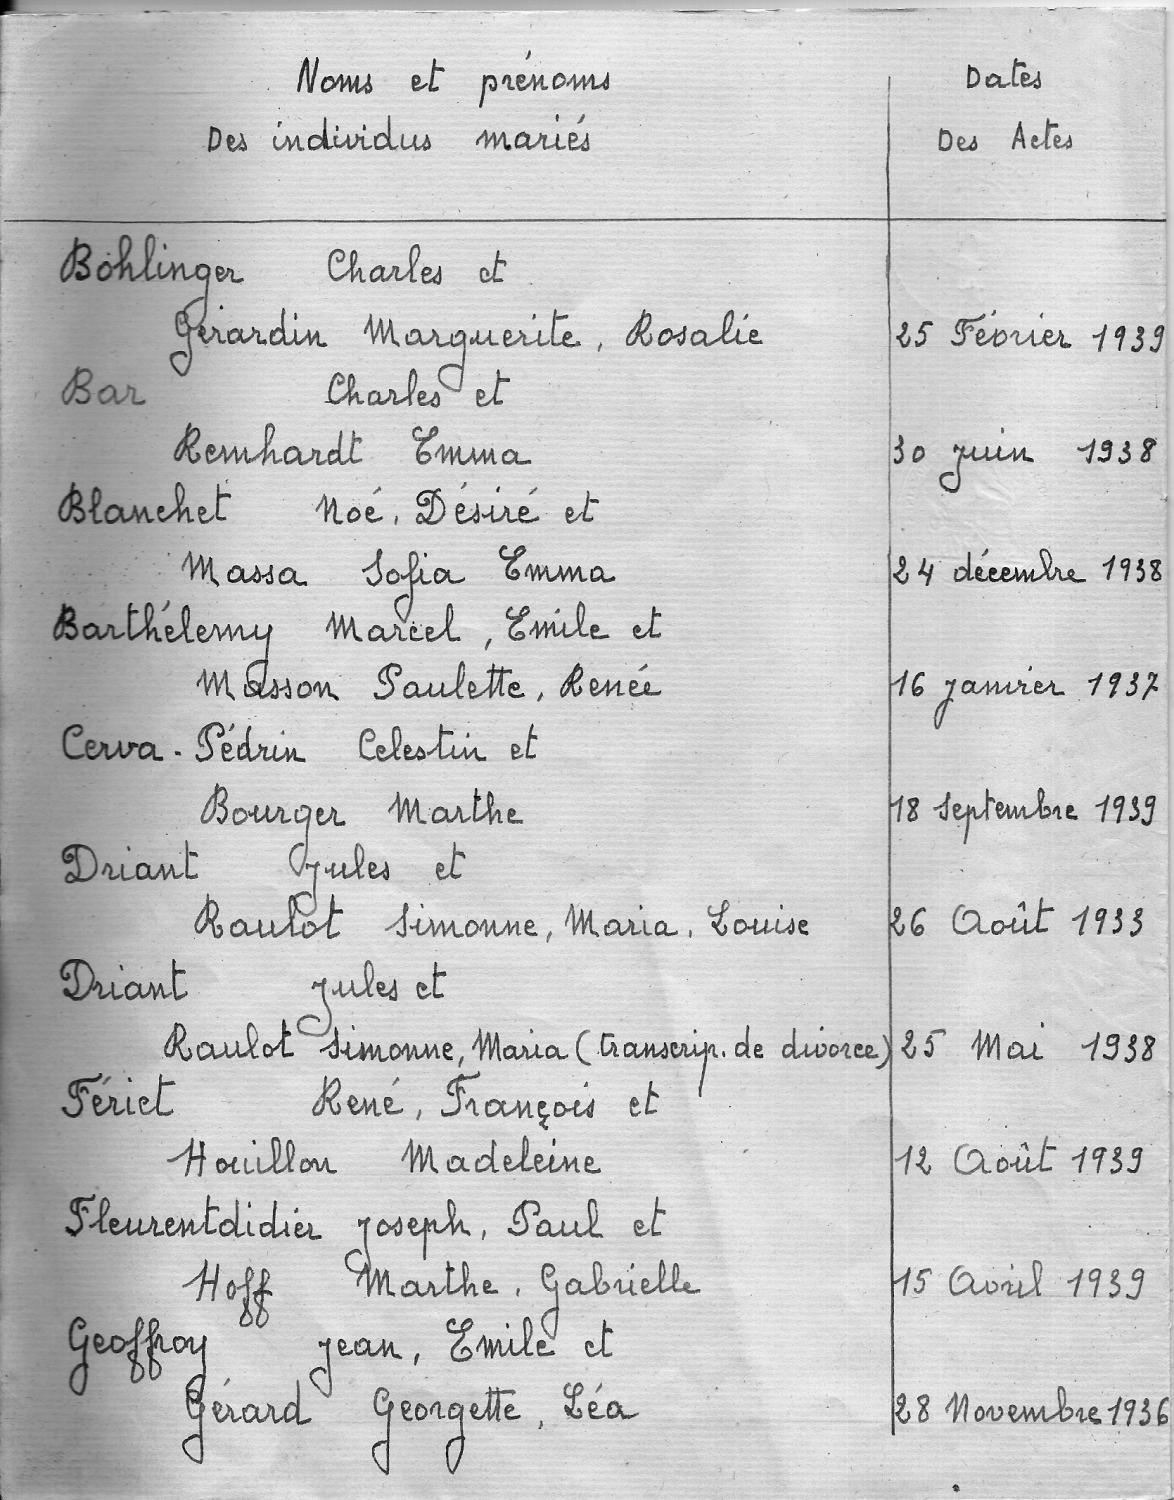 Noms et prénoms Dates
Des individus mariés Des Actes
Böhlinger Charles et
Gérardin Marguerite, Rosalie 25 Février 1939
Bar Charles et
Remhardt Emma 30 juin 1938
Blanchet Noé, Désiré et
Massa Sofia Emma 24 décembre 1938
Barthélemy Marcel, Emile et
Masson Paulette, Renée 16 janvier 1937
Cerva - Pédrin Celestin et
Bourger Marthe 18 Septembre 1939
Driant Jules et
Raulot Simonne, Maria, Louise 26 Août 1933
Driant Jules et
Raulot Simonne, Maria (transcrip. de divorce) 25 Mai 1938
Fériet René, François et
Houillon Madeleine 12 Août 1939
Fleurentdidier Joseph, Paul et
Hoff Marthe, Gabrielle 15 Avril 1939
Geoffroy Jean, Emile et
Gérard Georgette, Léa 28 Novembre 1936